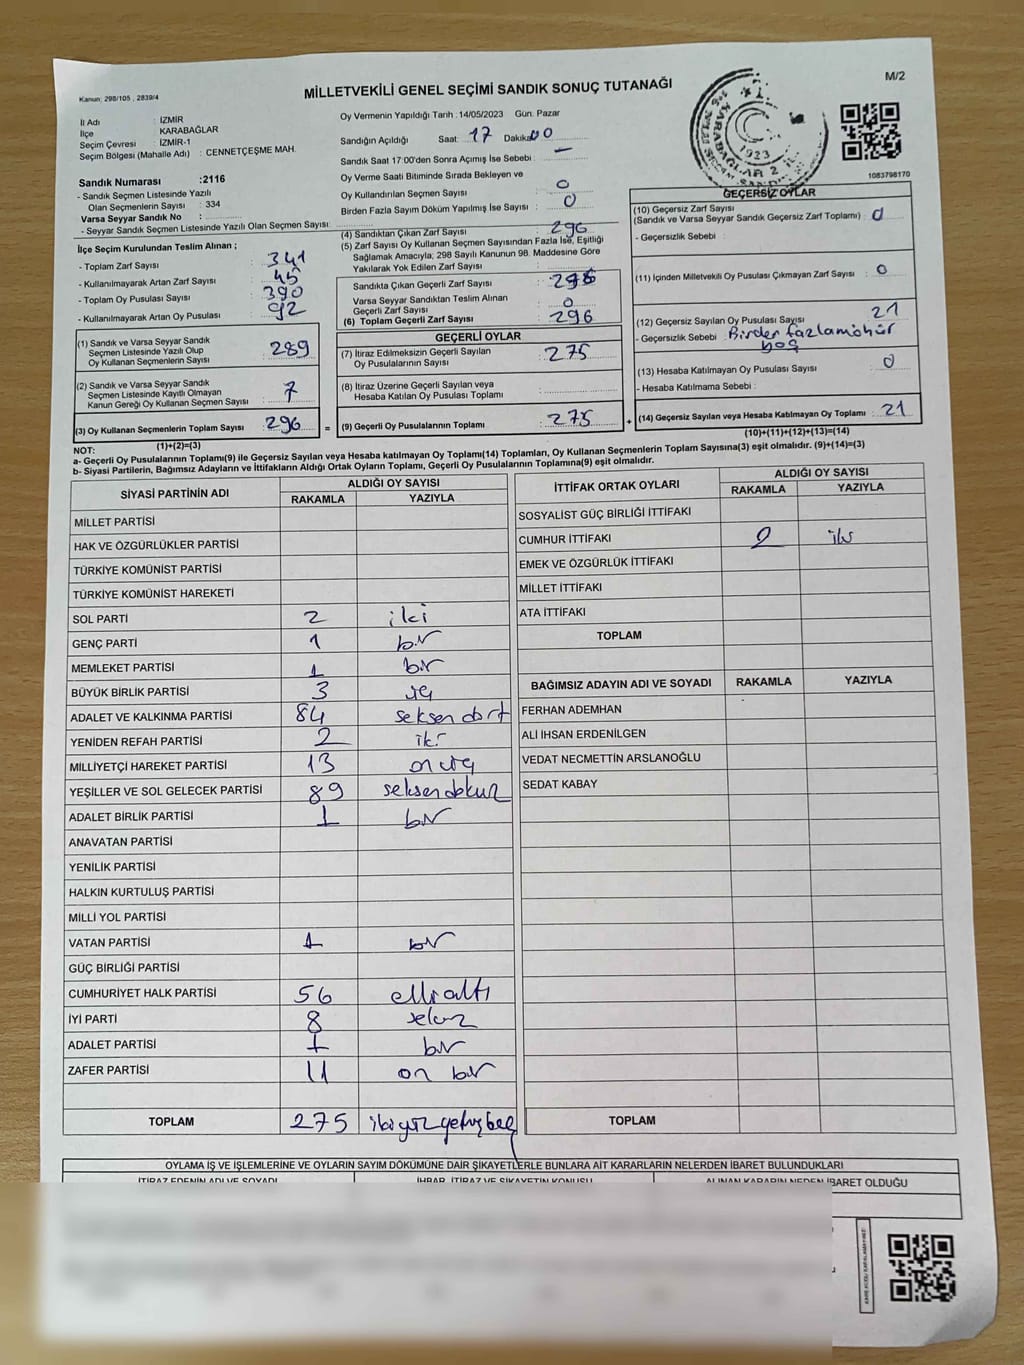 Kanun: 298/105 , 2839/4
MİLLETVEKİLİ GENEL SEÇİMİ SANDIK SONUÇ TUTANAĞI
M/2
İl Adı : İZMİR
İlçe : KARABAĞLAR
Seçim Çevresi : İZMİR-1
Seçim Bölgesi (Mahalle Adı) : CENNETÇEŞME MAH.
Oy Vermenin Yapıldığı Tarih : 14/05/2023 Gün. Pazar
Sandığın Açıldığı Saat: 17 Dakika: 00
Sandık Saat 17:00'den Sonra Açımış İse Sebebi : —
Oy Verme Saati Bitiminde Sırada Bekleyen ve
Oy Kullandırılan Seçmen Sayısı : 0
Birden Fazla Sayım Döküm Yapılmış İse Sayısı : 0
1923
KARABAĞLAR 2.
1083798170
Sandık Numarası :2116
- Sandık Seçmen Listesinde Yazılı
Olan Seçmenlerin Sayısı : 334
Varsa Seyyar Sandık No :
- Seyyar Sandık Seçmen Listesinde Yazılı Olan Seçmen Sayısı:
İlçe Seçim Kurulundan Teslim Alınan ;
- Toplam Zarf Sayısı : 341
- Kullanılmayarak Artan Zarf Sayısı : 45
- Toplam Oy Pusulası Sayısı : 390
- Kullanılmayarak Artan Oy Pusulası : 92
(1) Sandık ve Varsa Seyyar Sandık
Seçmen Listesinde Yazılı Olup
Oy Kullanan Seçmenlerin Sayısı : 289
(2) Sandık ve Varsa Seyyar Sandık
Seçmen Listesinde Kayıtlı Olmayan
Kanun Gereği Oy Kullanan Seçmen Sayısı : 7
(3) Oy Kullanan Seçmenlerin Toplam Sayısı : 296
(1)+(2)=(3)
(4) Sandıktan Çıkan Zarf Sayısı : 296
(5) Zarf Sayısı Oy Kullanan Seçmen Sayısından Fazla İse, Eşitliği
Sağlamak Amacıyla, 298 Sayılı Kanunun 98. Maddesine Göre
Yakılarak Yok Edilen Zarf Sayısı :
Sandıkta Çıkan Geçerli Zarf Sayısı : 296
Varsa Seyyar Sandıktan Teslim Alınan
Geçerli Zarf Sayısı : 0
(6) Toplam Geçerli Zarf Sayısı : 296
GEÇERLİ OYLAR
(7) İtiraz Edilmeksizin Geçerli Sayılan
Oy Pusulalarının Sayısı : 275
(8) İtiraz Üzerine Geçerli Sayılan veya
Hesaba Katılan Oy Pusulası Toplamı :
= (9) Geçerli Oy Pusulalarının Toplamı : 275 +
GEÇERSİZ OYLAR
(10) Geçersiz Zarf Sayısı
(Sandık ve Varsa Seyyar Sandık Geçersiz Zarf Toplamı) : 0
- Geçersizlik Sebebi :
(11) İçinden Milletvekili Oy Pusulası Çıkmayan Zarf Sayısı : 0
(12) Geçersiz Sayılan Oy Pusulası Sayısı : 21
- Geçersizlik Sebebi : Birden fazla mühür
boş
(13) Hesaba Katılmayan Oy Pusulası Sayısı : 0
- Hesaba Katılmama Sebebi :
(14) Geçersiz Sayılan veya Hesaba Katılmayan Oy Toplamı : 21
(10)+(11)+(12)+(13)=(14)
NOT:
a- Geçerli Oy Pusulalarının Toplamı(9) ile Geçersiz Sayılan veya Hesaba katılmayan Oy Toplamı(14) Toplamları, Oy Kullanan Seçmenlerin Toplam Sayısına(3) eşit olmalıdır. (9)+(14)=(3)
b- Siyasi Partilerin, Bağımsız Adayların ve İttifakların Aldığı Ortak Oyların Toplamı, Geçerli Oy Pusulalarının Toplamına(9) eşit olmalıdır.
SİYASİ PARTİNİN ADI ALDIĞI OY SAYISI
RAKAMLA YAZIYLA
MİLLET PARTİSİ
HAK VE ÖZGÜRLÜKLER PARTİSİ
TÜRKİYE KOMÜNİST PARTİSİ
TÜRKİYE KOMÜNİST HAREKETİ
SOL PARTİ 2 iki
GENÇ PARTİ 1 bir
MEMLEKET PARTİSİ 1 bir
BÜYÜK BİRLİK PARTİSİ 3 üç
ADALET VE KALKINMA PARTİSİ 84 seksen dört
YENİDEN REFAH PARTİSİ 2 iki
MİLLİYETÇİ HAREKET PARTİSİ 13 on üç
YEŞİLLER VE SOL GELECEK PARTİSİ 89 seksendokuz
ADALET BİRLİK PARTİSİ 1 bir
ANAVATAN PARTİSİ
YENİLİK PARTİSİ
HALKIN KURTULUŞ PARTİSİ
MİLLİ YOL PARTİSİ
VATAN PARTİSİ 1 bir
GÜÇ BİRLİĞİ PARTİSİ
CUMHURİYET HALK PARTİSİ 56 elli altı
İYİ PARTİ 8 sekiz
ADALET PARTİSİ 1 bir
ZAFER PARTİSİ 11 on bir
TOPLAM 275 ikiyüzyetmişbeş
İTTİFAK ORTAK OYLARI ALDIĞI OY SAYISI
RAKAMLA YAZIYLA
SOSYALİST GÜÇ BİRLİĞİ İTTİFAKI
CUMHUR İTTİFAKI 2 iki
EMEK VE ÖZGÜRLÜK İTTİFAKI
MİLLET İTTİFAKI
ATA İTTİFAKI
TOPLAM
BAĞIMSIZ ADAYIN ADI VE SOYADI RAKAMLA YAZIYLA
FERHAN ADEMHAN
ALİ İHSAN ERDENİLGEN
VEDAT NECMETTİN ARSLANOĞLU
SEDAT KABAY
TOPLAM
OYLAMA İŞ VE İŞLEMLERİNE VE OYLARIN SAYIM DÖKÜMÜNE DAİR ŞİKAYETLERLE BUNLARA AİT KARARLARIN NELERDEN İBARET BULUNDUKLARI
İTİRAZ EDENİN ADI VE SOYADI İHBAR, İTİRAZ VE ŞİKAYETİN KONUSU ALINAN KARARIN NEDEN İBARET OLDUĞU